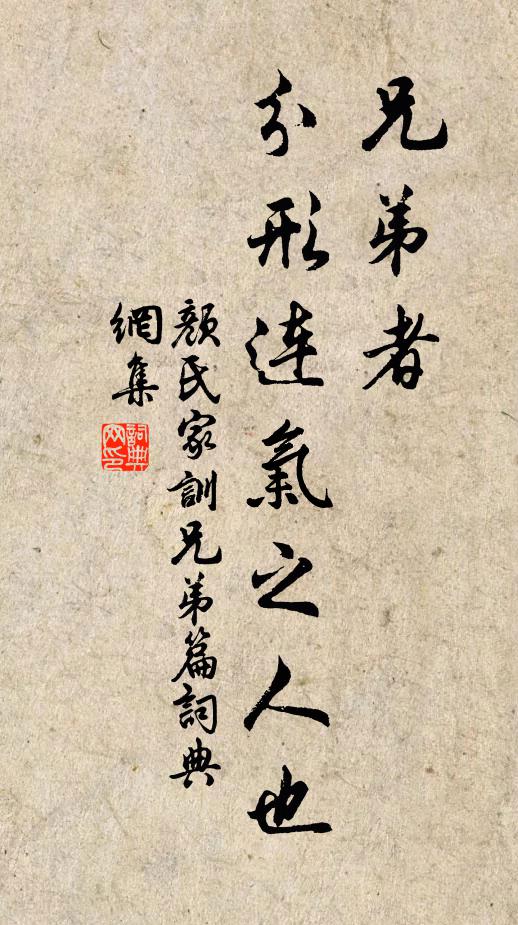 兄弟者
分形連氣之人也
顏氏家訓兄弟篇詞典
網集
詞典
网印